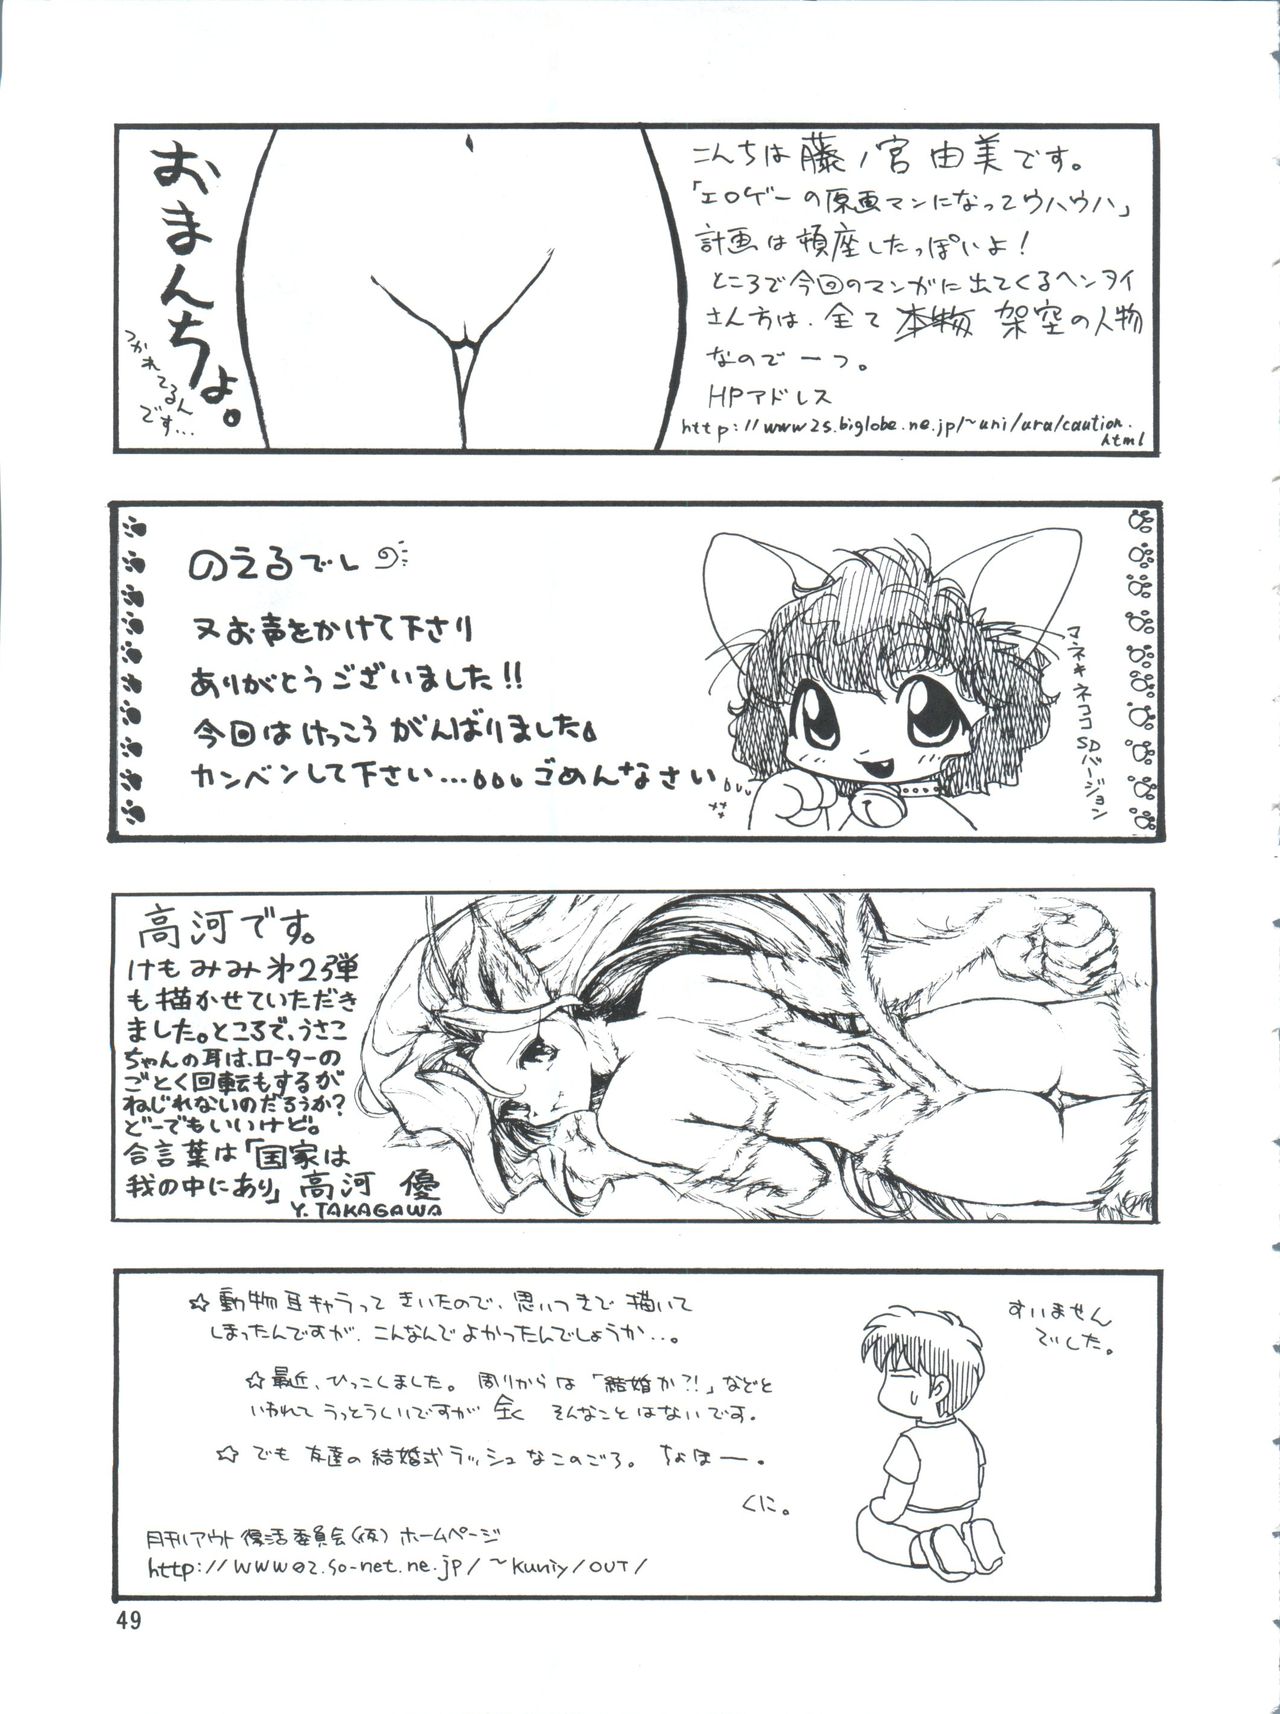 こんちは藤ノ宮由美です。
「エロゲーの原画マンになってウハウハ」
計画は頓座したっぽいよ！
ところで今回のマンガに出てくるヘンタイ
さん方は、全て本物 架空の人物
なのでーっ。
HPアドレス
http://www2s.biglobe.ne.jp/~uni/ura/caution.
html
おまんちょ。
つかれてるん
です…
のえるでし
又お声をかけて下さり
ありがとうございました!!
今回はけっこうがんばりました
カンベンして下さい…ごめんなさい
マネキネココ
SDバージョン
高河です。
けもみみ第2弾
も描かせていただき
ました。ところで、うさこ
ちゃんの耳は、ローターの
ごとく回転もするが
ねじれないのだろうか?
どーでもいいけど。
合言葉は「国家は
我の中にあり」高河 優
Y.TAKAGAWA
☆動物耳キャラってきいたので、思いつきで描いて
しまったんですが、こんなんでよかったんでしょうか…。
☆最近、ひっこしました。周りからは「結婚か?!」などと
いわれてうっとうしいですが全くそんなことはないです。
☆でも友達の結婚式ラッシュなこのごろ。ちょほー。
くに。
すいません
でした。
月刊アウト復活委員会(仮)ホームページ
http://www02.so-net.ne.jp/~kuniy/OUT/
49